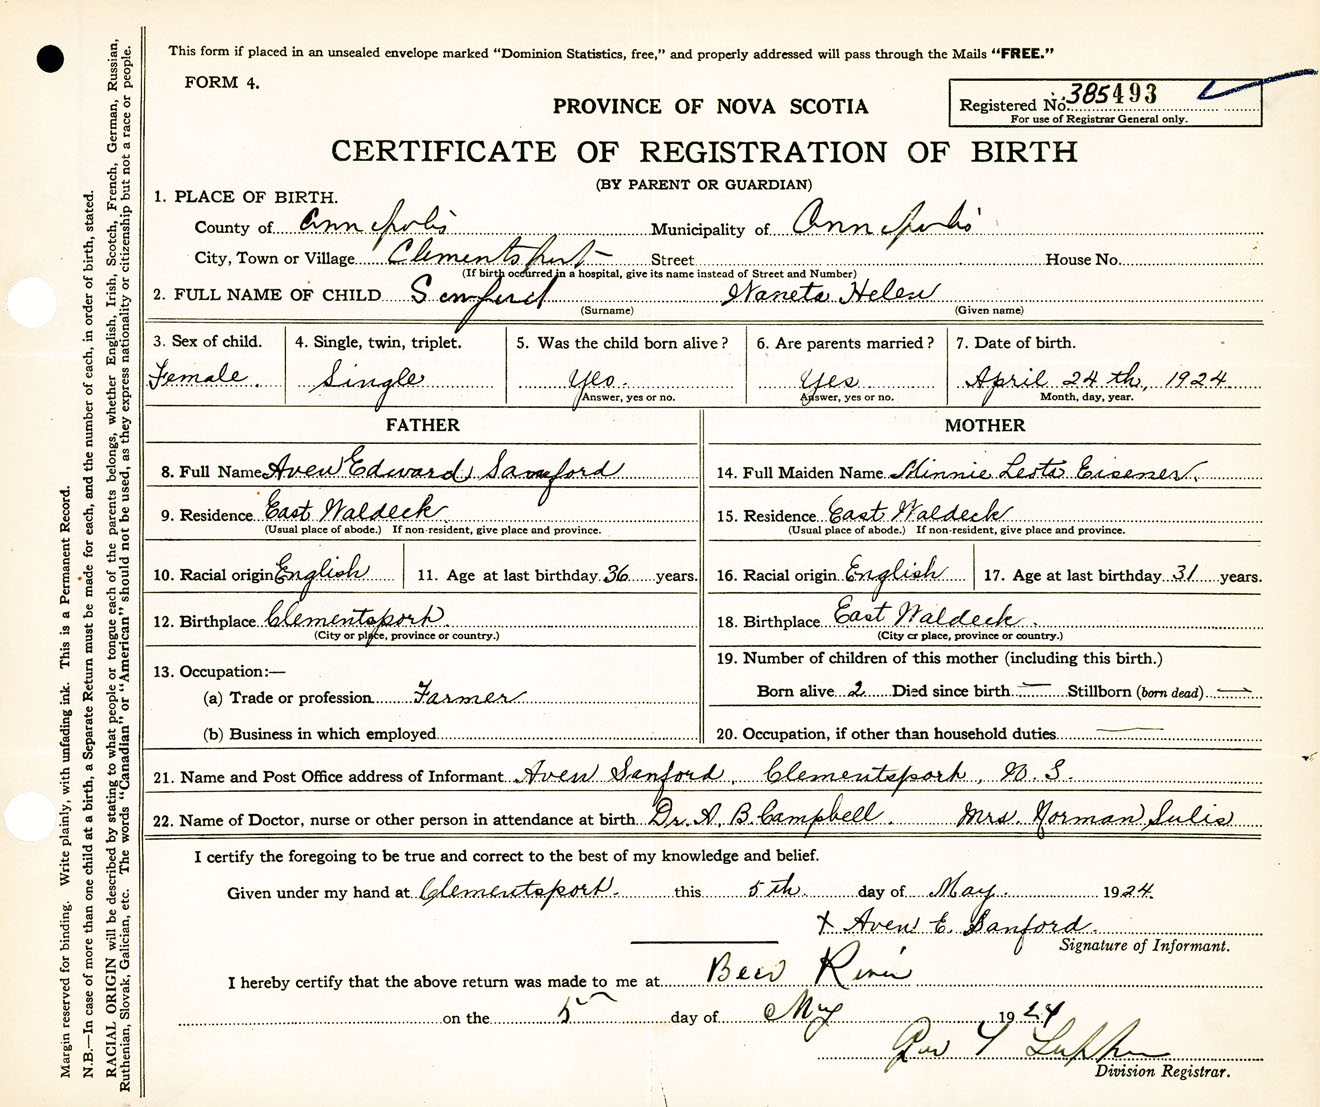 This form if placed in an unsealed envelope marked "Dominion Statistics, free," and properly addressed will pass through the Mails "FREE."
FORM 4.
Registered No. 385493
For use of Registrar General only.
PROVINCE OF NOVA SCOTIA
CERTIFICATE OF REGISTRATION OF BIRTH
(BY PARENT OR GUARDIAN)
1. PLACE OF BIRTH.
County of Annapolis Municipality of Annapolis
City, Town or Village Clementsport Street House No.
(If birth occurred in a hospital, give its name instead of Street and Number)
2. FULL NAME OF CHILD Sanford Waneta Helen
(Surname) (Given name)
3. Sex of child. 4. Single, twin, triplet. 5. Was the child born alive? 6. Are parents married? 7. Date of birth.
Female. Single Yes. Yes April 24th, 1924
Answer, yes or no. Answer, yes or no. Month, day, year.
FATHER
8. Full Name Aven Edward Sanford
9. Residence East Waldeck
(Usual place of abode.) If non-resident, give place and province.
10. Racial origin English 11. Age at last birthday 36 years.
12. Birthplace Clementsport.
(City or place, province or country.)
13. Occupation:—
(a) Trade or profession Farmer
(b) Business in which employed
MOTHER
14. Full Maiden Name Minnie Leota Eisener.
15. Residence East Waldeck
(Usual place of abode.) If non-resident, give place and province.
16. Racial origin English 17. Age at last birthday 31 years.
18. Birthplace East Waldeck.
(City or place, province or country.)
19. Number of children of this mother (including this birth.)
Born alive 2 Died since birth — Stillborn (born dead) —
20. Occupation, if other than household duties —
21. Name and Post Office address of Informant Aven Sanford, Clementsport, N. S.
22. Name of Doctor, nurse or other person in attendance at birth Dr. A. B. Campbell. Mrs. Norman Sulis
I certify the foregoing to be true and correct to the best of my knowledge and belief.
Given under my hand at Clementsport. this 5th day of May. 1924.
x Aven E. Sanford.
Signature of Informant.
I hereby certify that the above return was made to me at Bear River
on the 5 day of May 1924
Division Registrar.
Margin reserved for binding. Write plainly, with unfading ink. This is a Permanent Record.
N.B.—In case of more than one child at a birth, a Separate Return must be made for each, and the number of each, in order of birth, stated.
RACIAL ORIGIN will be described by stating to what people or tongue each of the parents belongs, whether English, Irish, Scotch, French, German, Russian,
Ruthenian, Slovak, Galician, etc. The words "Canadian" or "American" should not be used, as they express nationality or citizenship but not a race or people.